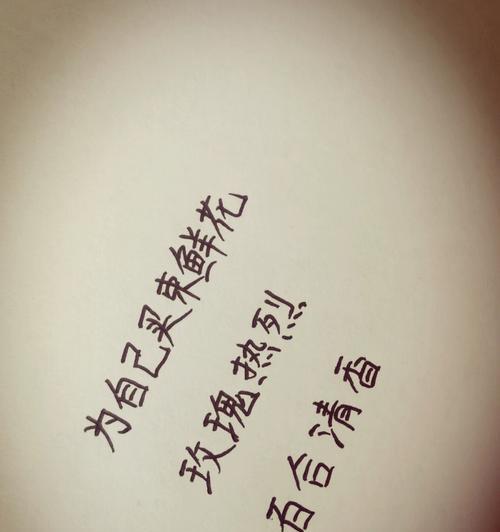 为自己买束鲜花
玫瑰热烈
百合清香